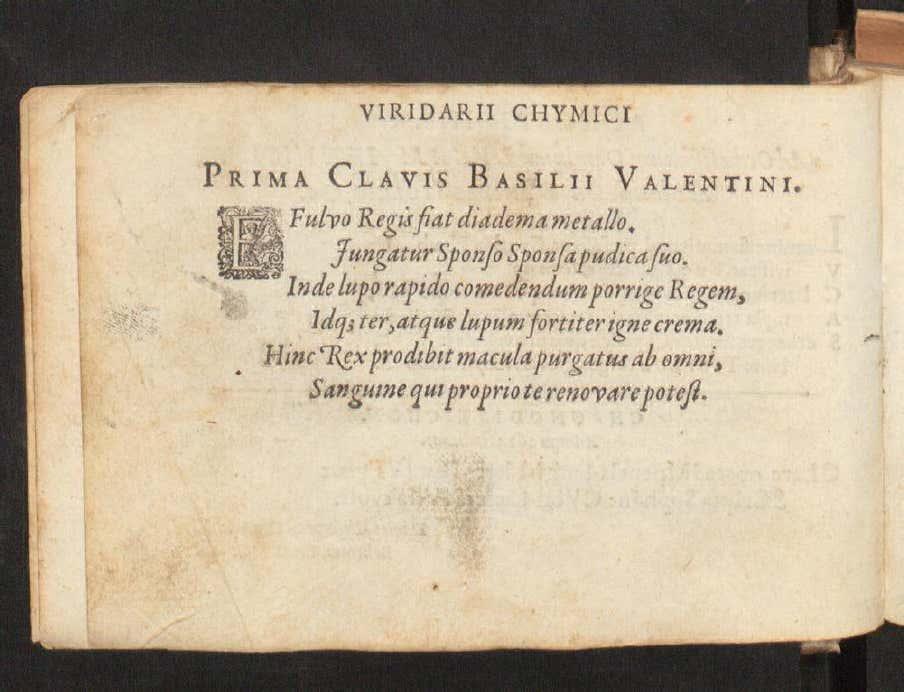 VIRIDARII CHYMICI
PRIMA CLAVIS BASILII VALENTINI.
E Fulvo Regis fiat diadema metallo.
Jungatur Sponso Sponsa pudica suo.
Inde lupo rapido comedendum porrige Regem,
Idq; ter, atque lupum fortiter igne crema.
Hinc Rex prodibit macula purgatus ab omni,
Sanguine qui proprio te renovare potest.